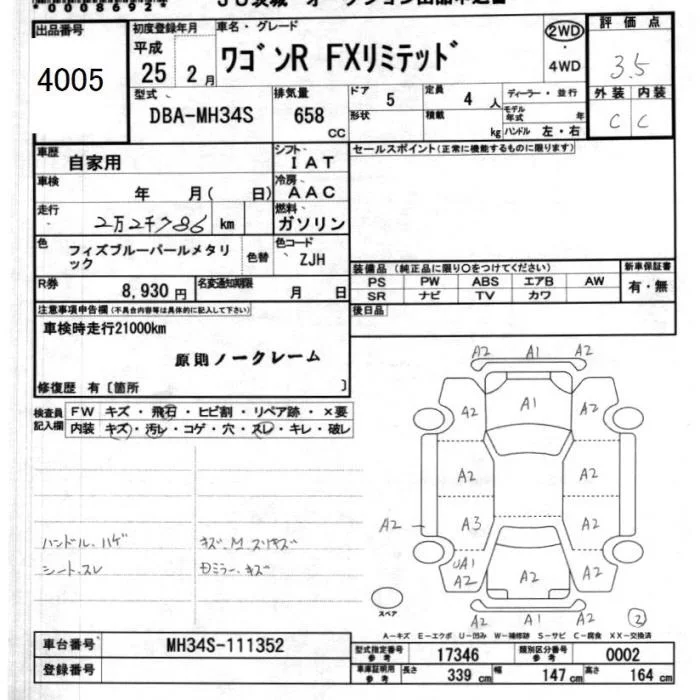 0086921
出品番号 初度登録年月 車名・グレード 評価点
4005 平成 25 2月 ワゴンR FXリミテッド 2WD・4WD 3.5
型式 排気量 ドア 定員 ディーラー・並行 外装 内装
DBA-MH34S 658 CC 5 4人 モデル年式 年 C C
形状 積載 kg ハンドル 左・右
車歴 自家用 シフト IAT セールスポイント(正常に機能するものに限ります)
車検 年 月( 日) 冷房 AAC
走行 2万2千786 km 燃料 ガソリン
色 フィズブルーパールメタリック 色替 色コード ZJH
装備品(純正品に限り○をつけてください) 新車保証書
PS PW ABS エアB AW 有・無
SR ナビ TV カワ
R券 8,930円 名変通知期限 月 日 後日品
注意事項申告欄(不具合内容等は具体的に記入して下さい)
車検時走行21000km
原則ノークレーム
修復歴 有〔箇所 〕
検査員記入欄 FW キズ・飛石・ヒビ割・リペア跡・×要
内装 キズ・汚レ・コゲ・穴・スレ・キレ・破レ
A2 A1 A2
A2 A1 A2
A2 A2
A2 A3 A2
UA1 A2 A2 A2
A2 A1 A2
ハンドル.ハゲ キズ.M.スリキズ
シート.スレ Dミラー.キズ
スペア 2
A-キズ E-エクボ U-凹み W-補修跡 S-サビ C-腐食 XX-交換済
車台番号 MH34S-111352 型式指定番号 参考 17346 類別区分番号 参考 0002
登録番号 車庫証明用 参考 長さ 339cm 幅 147cm 高さ 164cm